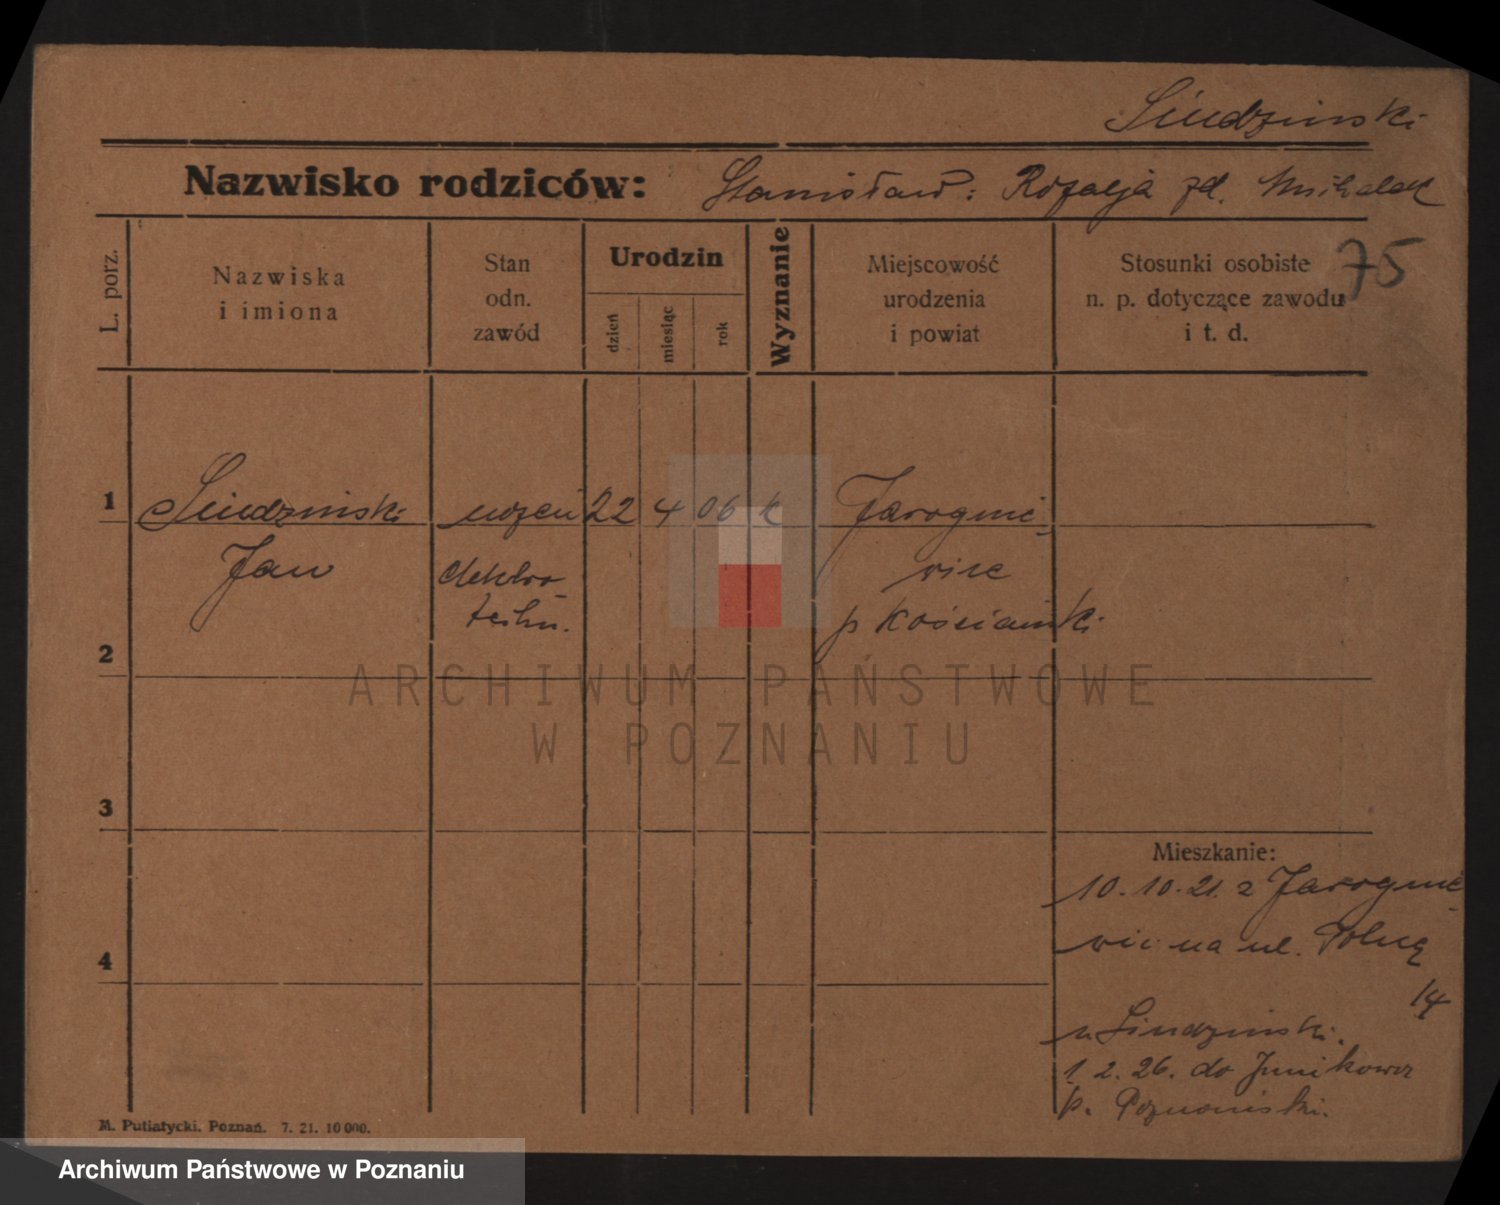 Siudziński
Nazwisko rodziców: Stanisław: Rozalja zd. Michalak
75
L. porz.
Nazwiska
i imiona
Stan
odn.
zawód
Urodzin
dzień
miesiąc
rok
Wyznanie
Miejscowość
urodzenia
i powiat
Stosunki osobiste
n. p. dotyczące zawodu
i t. d.
1 Siudziński uczeń 22 4 06 k Jarognie-
Jan elektro- wice
techn. p kościański
2
3
4
Mieszkanie:
10.10.21. z Jarognie-
wic na ul. Polną
14
u Siudziński.
1. 2. 26. do Junikowa
p. Poznański.
M. Putiatycki, Poznań. 7. 21. 10 000.
ARCHIWUM PAŃSTWOWE
W POZNANIU
Archiwum Państwowe w Poznaniu